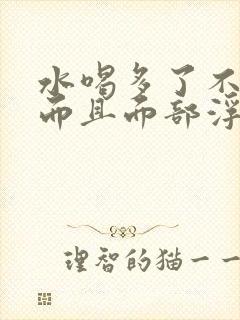 水喝多了不
而且面部浮
理智的猫一一